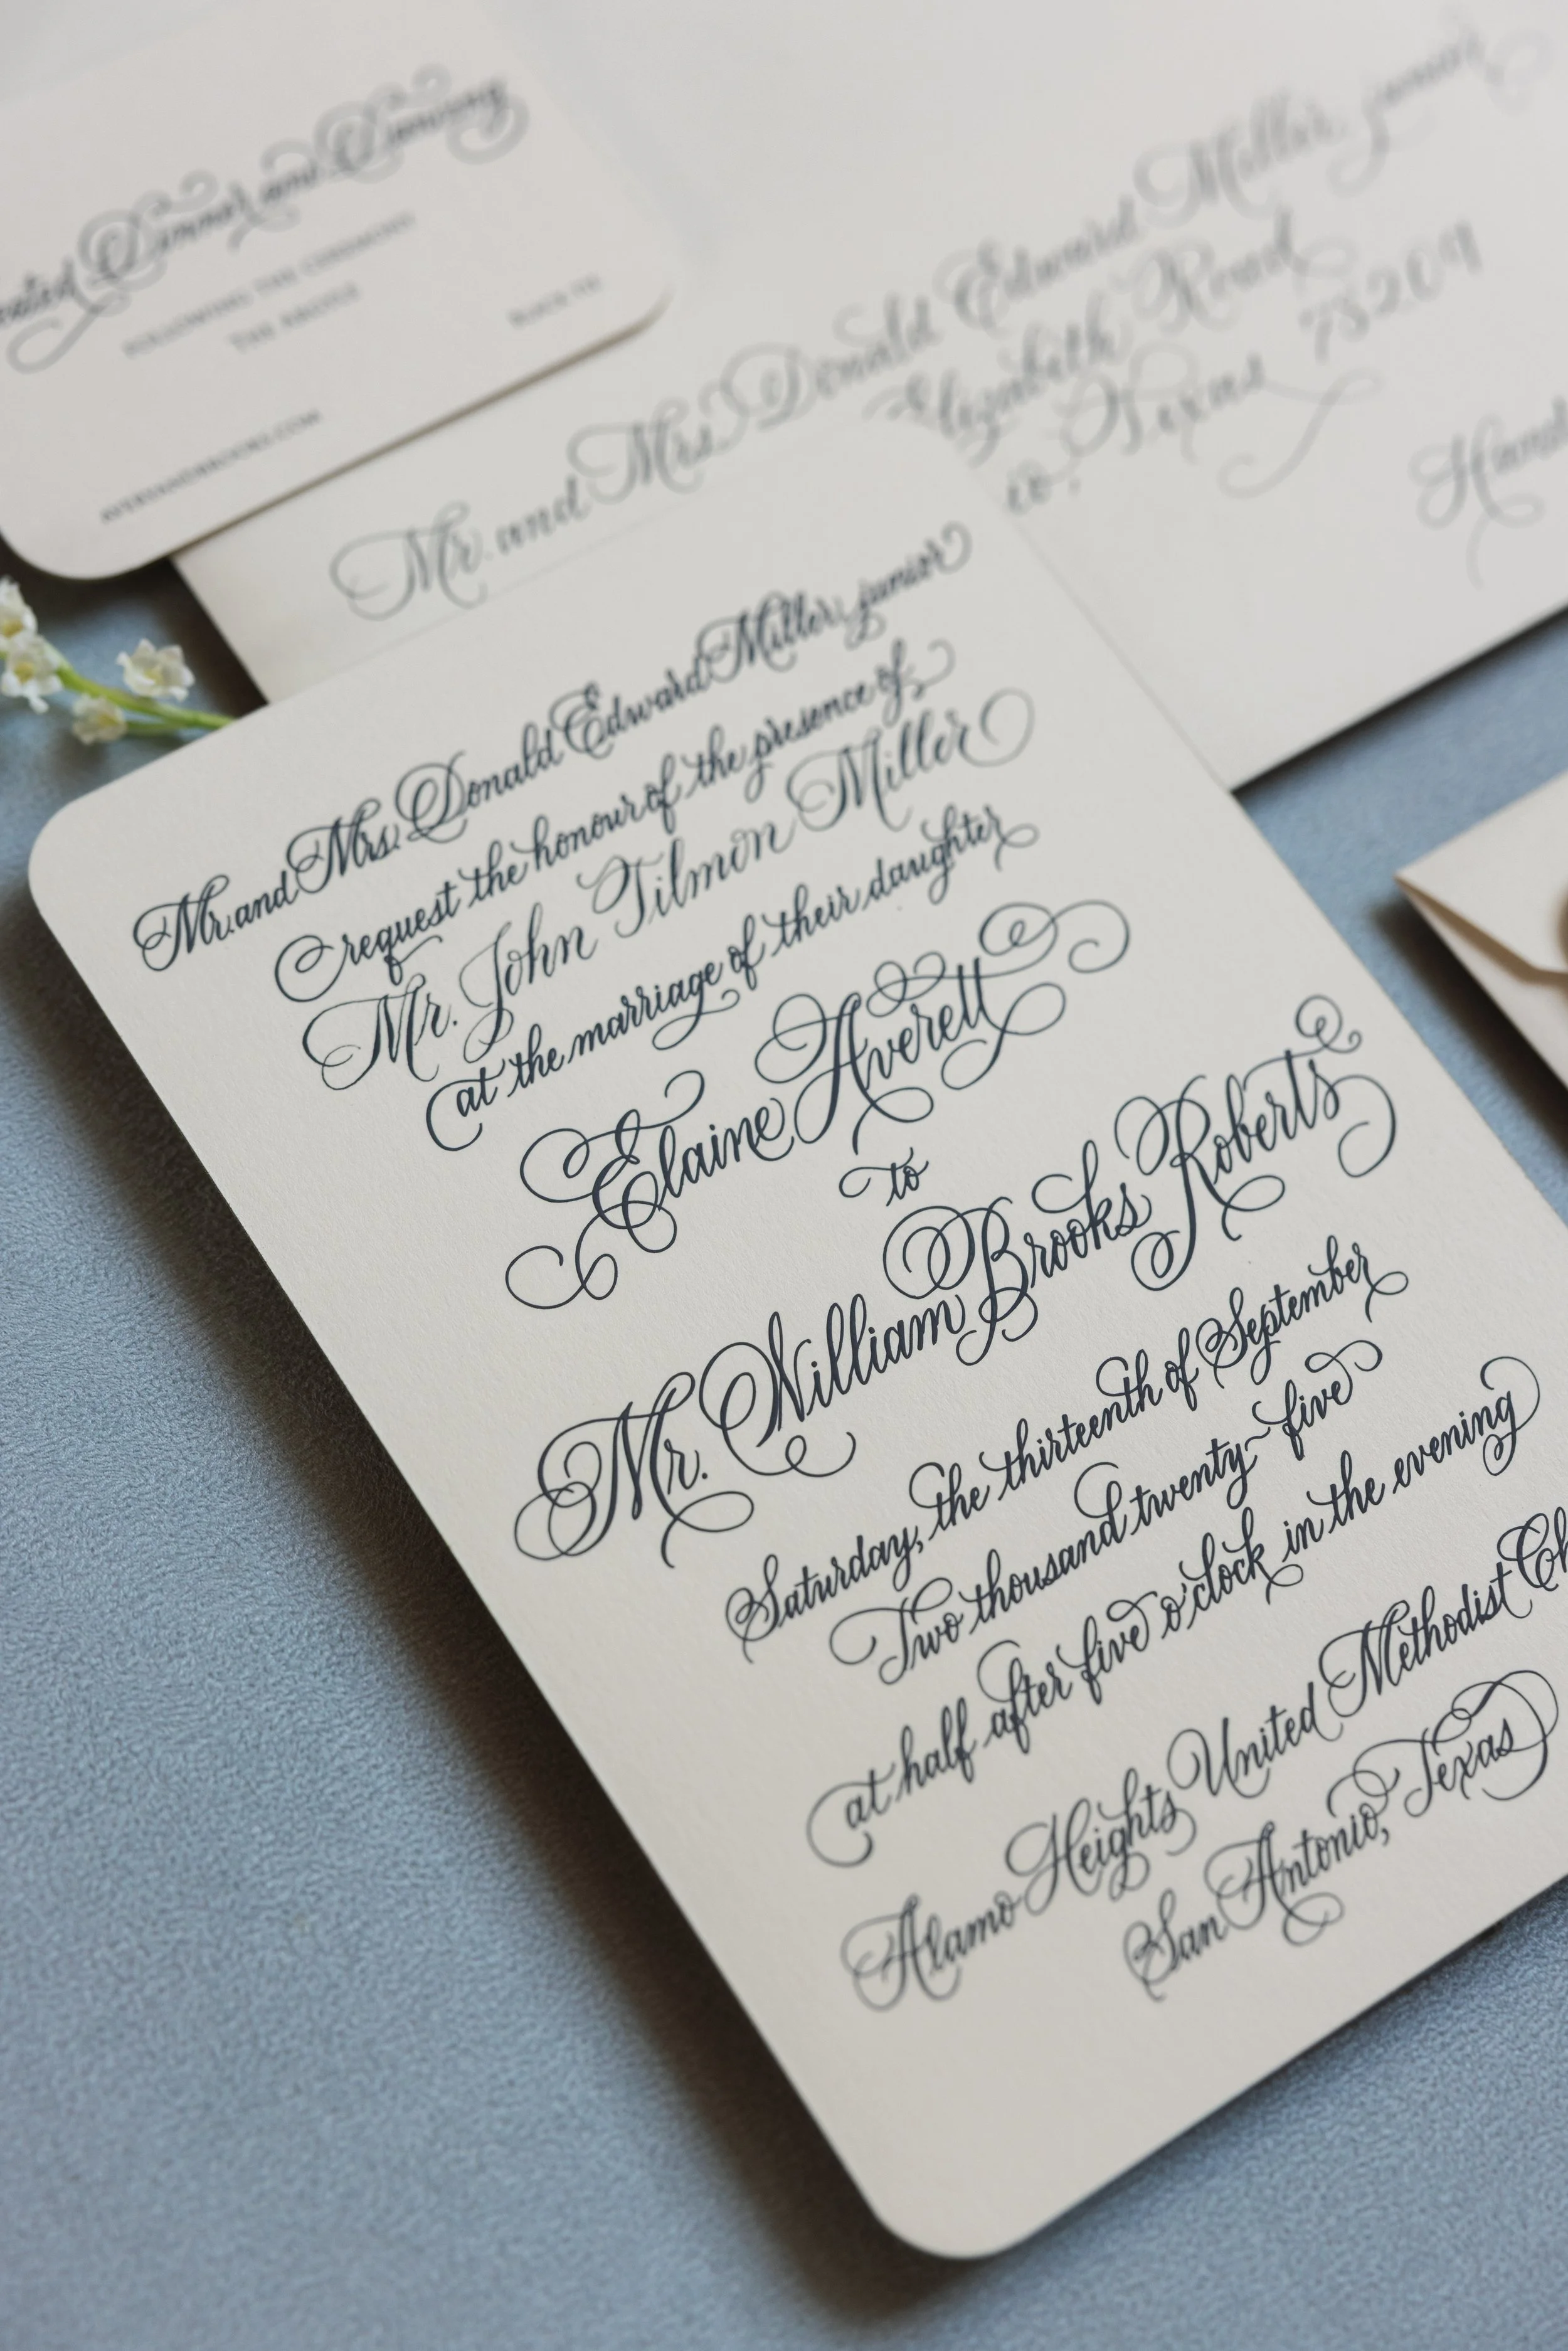 Seated Dinner and Dancing
FOLLOWING THE CEREMONY
THE ARGYLE
BLACK TIE
AVERYANDBROOKS.COM
Mr. and Mrs. Donald Edward Miller, junior
Elizabeth Road
Texas 78209
Mr. and Mrs. Donald Edward Miller, junior
request the honour of the presence of
Mr. John Tilmon Miller
at the marriage of their daughter
Elaine Averett
to
Mr. William Brooks Roberts
Saturday, the thirteenth of September
Two thousand twenty-five
at half after five o'clock in the evening
Alamo Heights United Methodist Ch
San Antonio, Texas